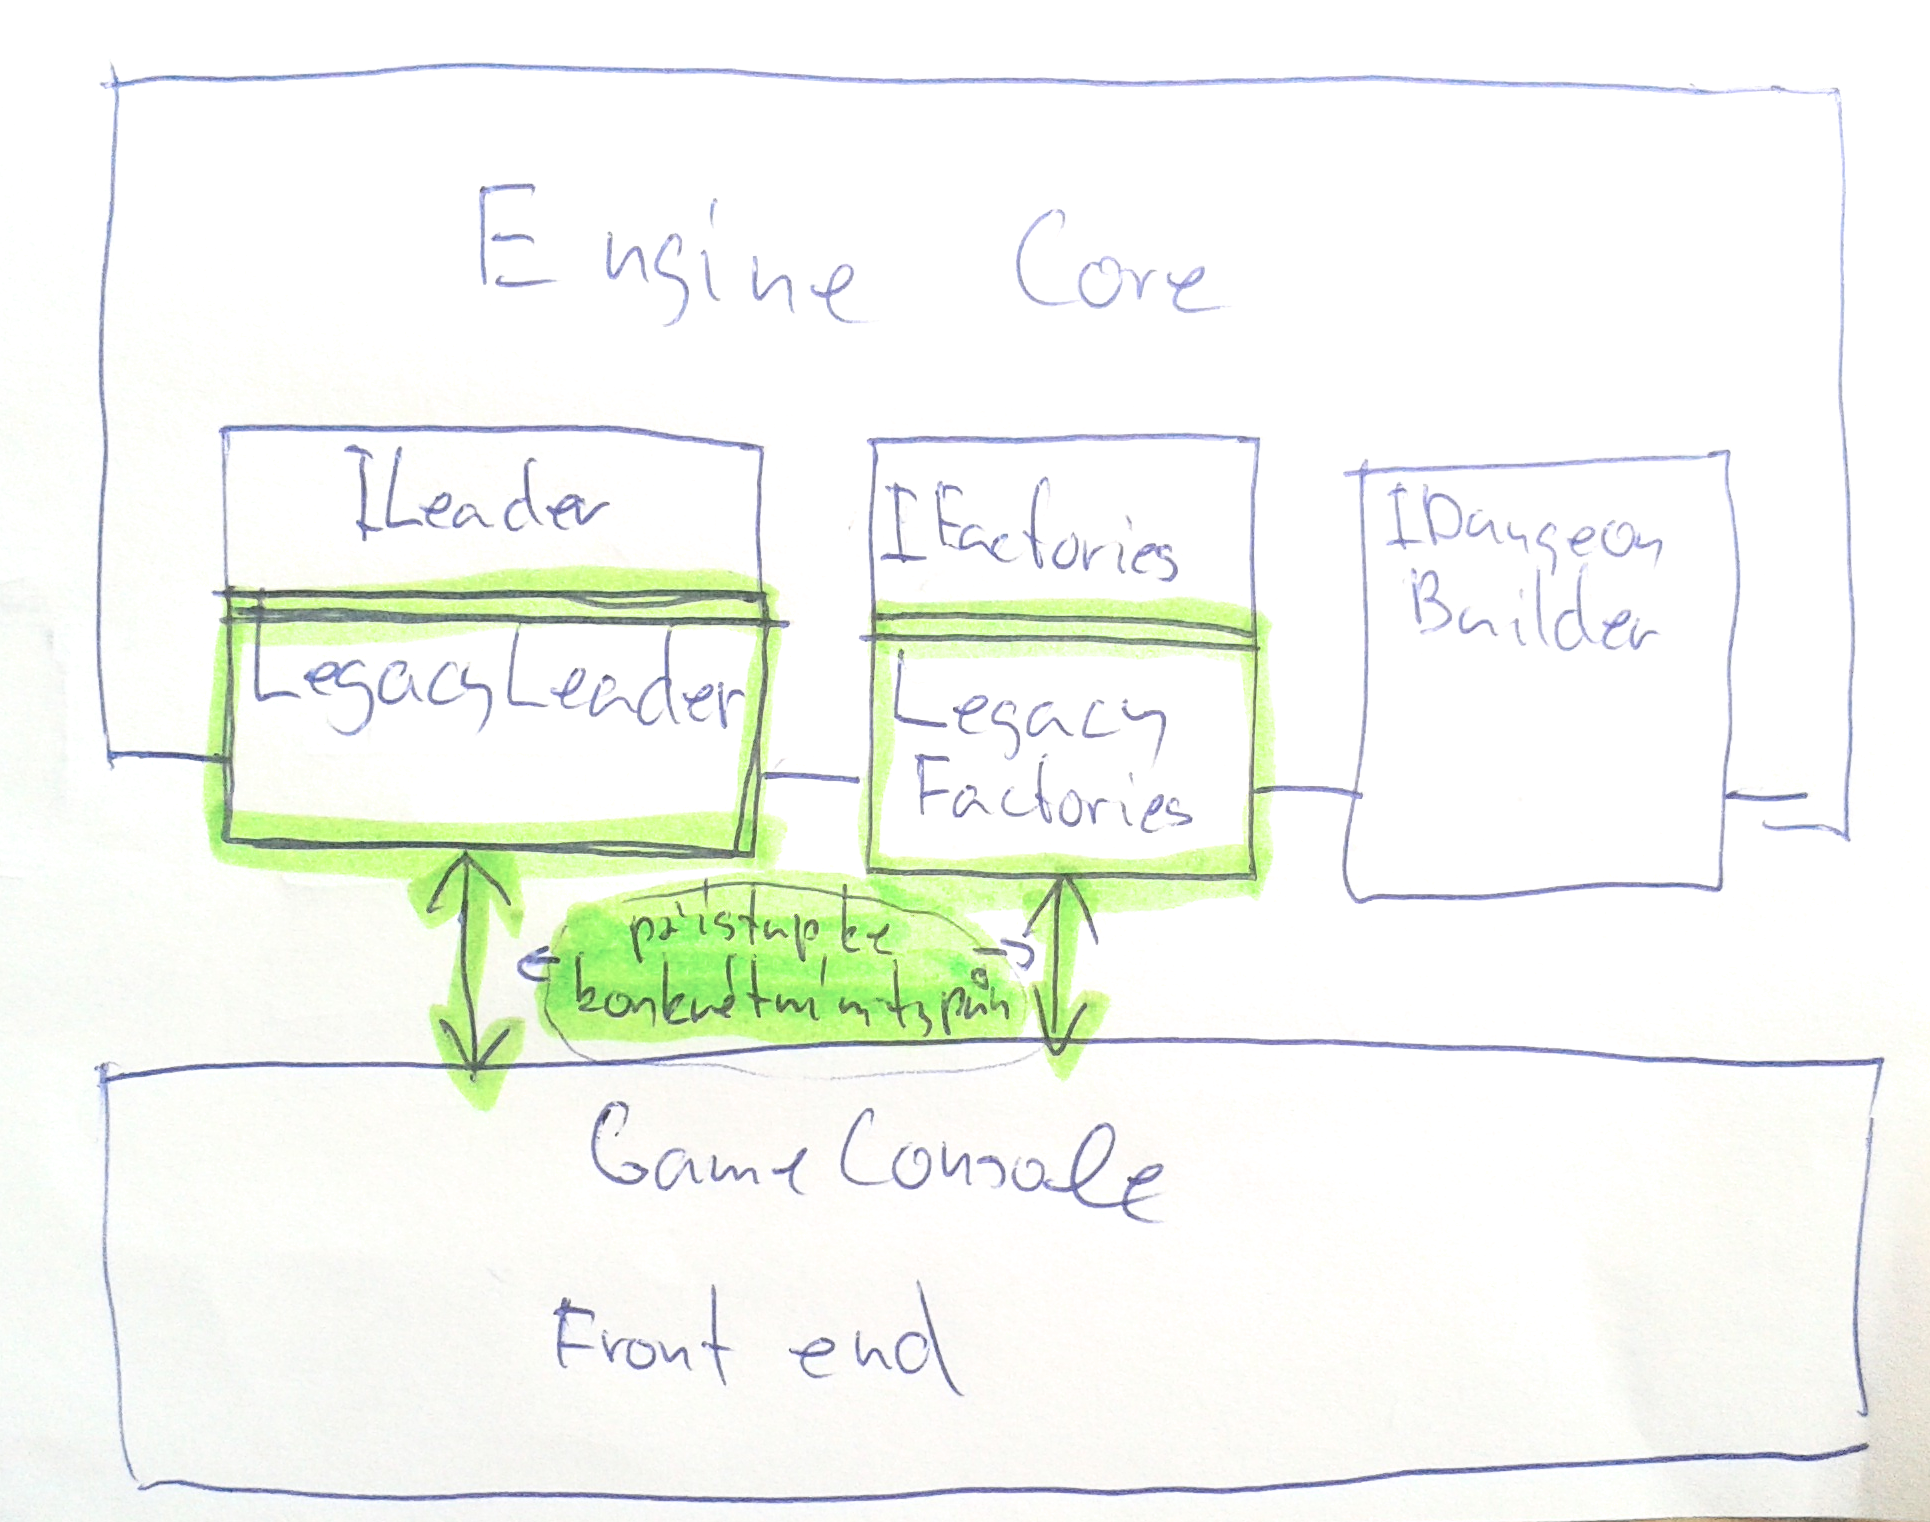 Engine Core
ILeader
LegacyLeader
IFactories
Legacy
Factories
IDangeon
Builder
přístup ke
konkrétním typům
GameConsole
Front end